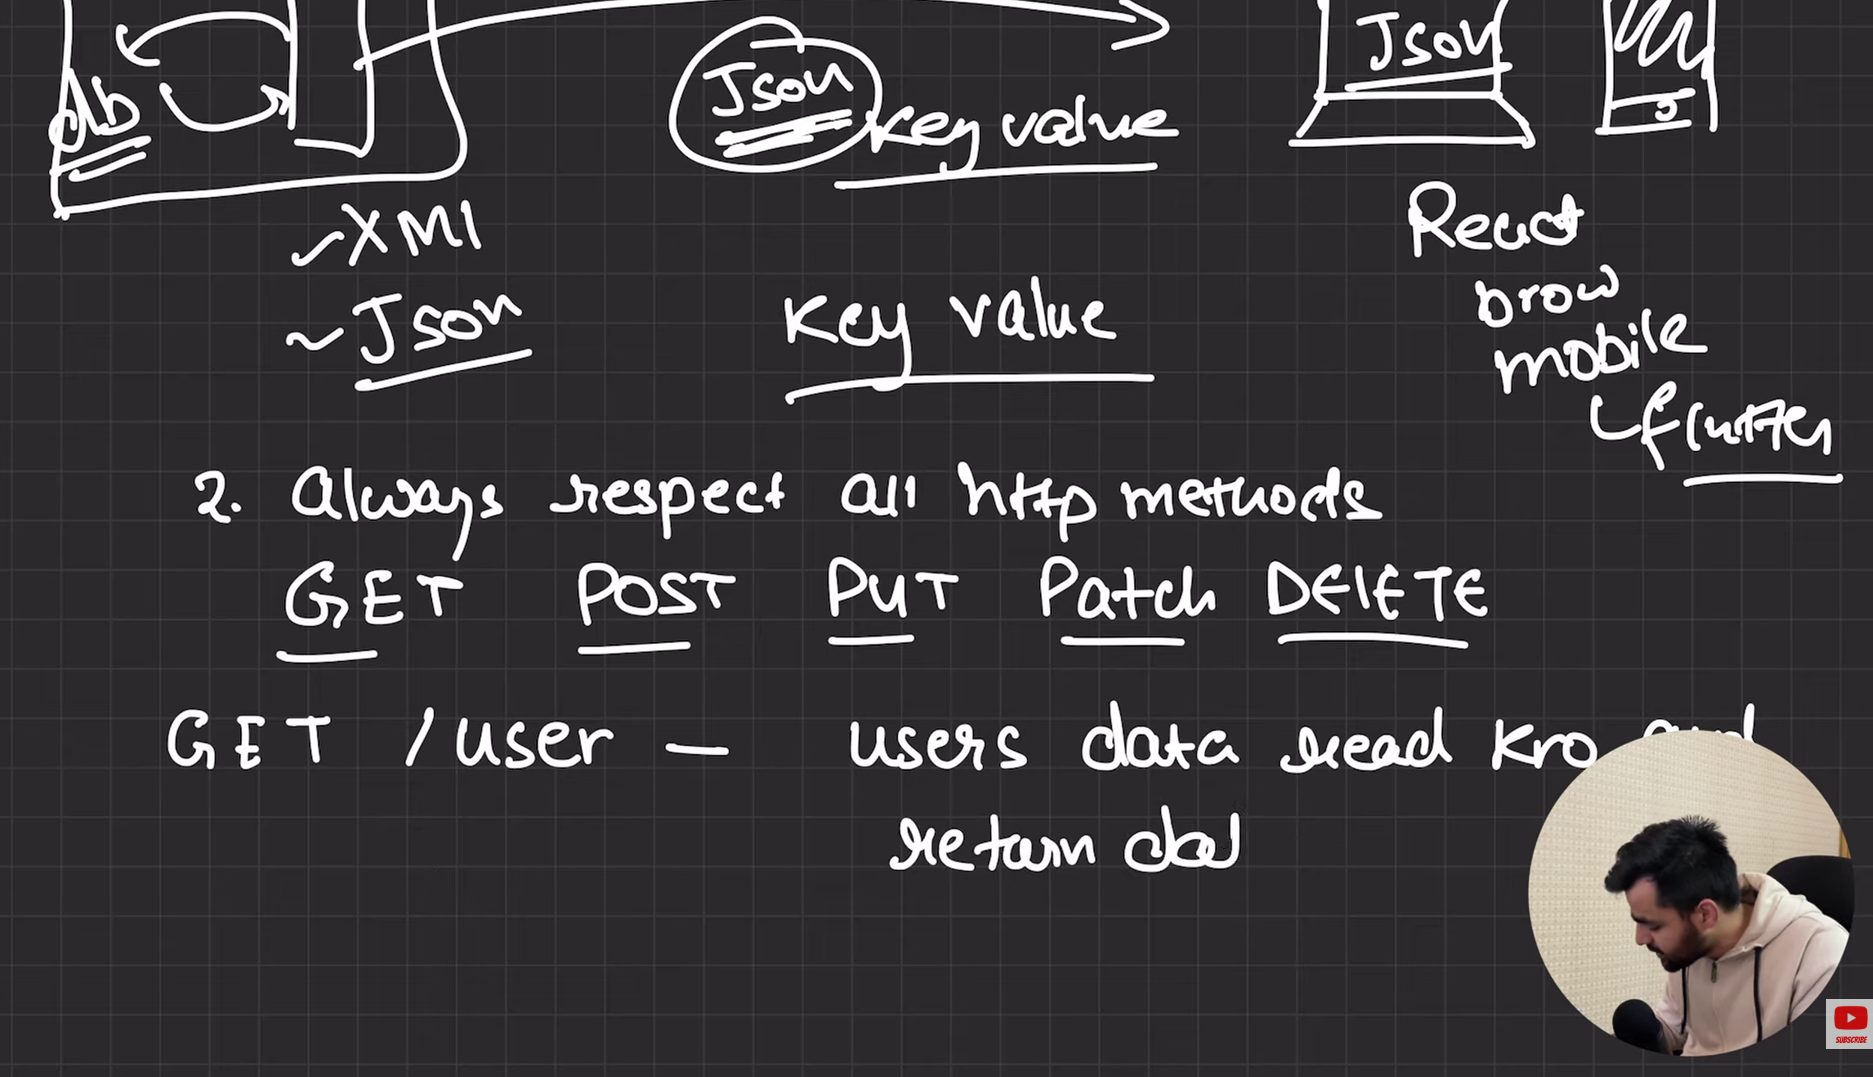 Json
db
Json
Key value
XMl
Json
Key value
React
brow
mobile
flutter
2. Always respect all http methods
GET POST PUT Patch DElETE
GET /user — users data read kro and
return da
SUBSCRIBE